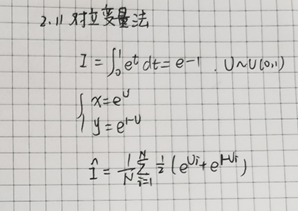 2.11 对立变量法
I = ∫₀¹ eᵗ dt = e-1 . U~U(0,1)
{ x = e^U
y = e^{1-U}
Î = 1/N ∑_{i=1}^{N} 1/2 (e^{Ui} + e^{1-Ui})